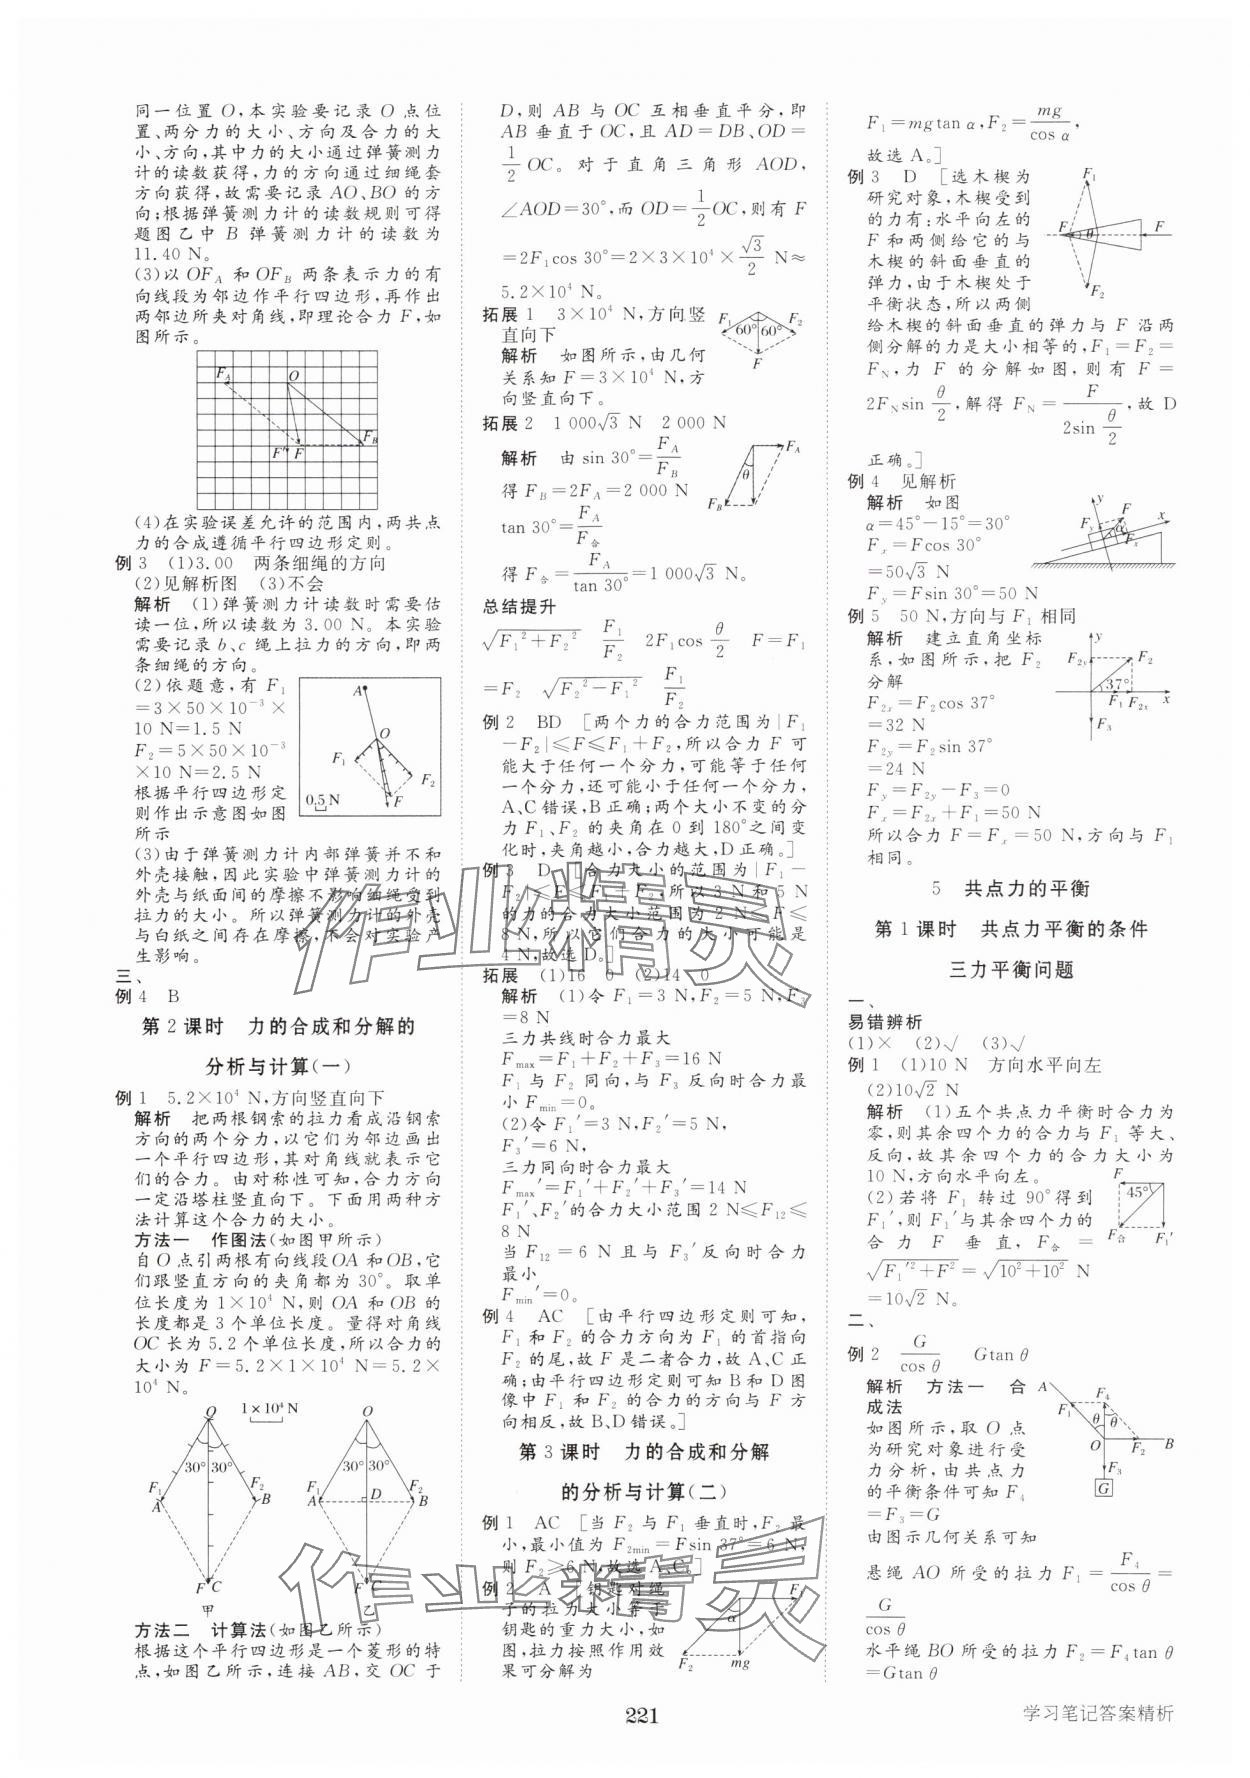 同一位置 O,本实验要记录 O 点位
置、两分力的大小、方向及合力的大
小、方向,其中力的大小通过弹簧测力
计的读数获得,力的方向通过细绳套
方向获得,故需要记录 AO、BO 的方
向;根据弹簧测力计的读数规则可得
题图乙中 B 弹簧测力计的读数为
11.40 N。
(3)以 OF_A 和 OF_B 两条表示力的有
向线段为邻边作平行四边形,再作出
两邻边所夹对角线,即理论合力 F,如
图所示。
F_A O
F′ F F_B
(4)在实验误差允许的范围内,两共点
力的合成遵循平行四边形定则。
例 3 (1)3.00 两条细绳的方向
(2)见解析图 (3)不会
解析 (1)弹簧测力计读数时需要估
读一位,所以读数为 3.00 N。本实验
需要记录 b、c 绳上拉力的方向,即两
条细绳的方向。
(2)依题意,有 F₁
=3×50×10⁻³×
10 N=1.5 N
F₂=5×50×10⁻³
×10 N=2.5 N
根据平行四边形定
则作出示意图如图
所示
A
O
F₁ F₂
F
0.5 N
(3)由于弹簧测力计内部弹簧并不和
外壳接触,因此实验中弹簧测力计的
外壳与纸面间的摩擦不影响细绳受到
拉力的大小。所以弹簧测力计的外壳
与白纸之间存在摩擦,不会对实验产
生影响。
三、
例 4 B
第 2 课时 力的合成和分解的
分析与计算(一)
例 1 5.2×10⁴ N,方向竖直向下
解析 把两根钢索的拉力看成沿钢索
方向的两个分力,以它们为邻边画出
一个平行四边形,其对角线就表示它
们的合力。由对称性可知,合力方向
一定沿塔柱竖直向下。下面用两种方
法计算这个合力的大小。
方法一 作图法(如图甲所示)
自 O 点引两根有向线段 OA 和 OB,它
们跟竖直方向的夹角都为 30°。取单
位长度为 1×10⁴ N,则 OA 和 OB 的
长度都是 3 个单位长度。量得对角线
OC 长为 5.2 个单位长度,所以合力的
大小为 F=5.2×1×10⁴ N=5.2×
10⁴ N。
O 1×10⁴ N O
30° 30° 30° 30°
F₁ F₂ F₁ F₂
A B A D B
F C F C
甲 乙
方法二 计算法(如图乙所示)
根据这个平行四边形是一个菱形的特
点,如图乙所示,连接 AB,交 OC 于
D,则 AB 与 OC 互相垂直平分,即
AB 垂直于 OC,且 AD=DB、OD=
1/2 OC。对于直角三角形 AOD,
∠AOD=30°,而 OD=1/2 OC,则有 F
=2F₁cos 30°=2×3×10⁴×√3/2 N≈
5.2×10⁴ N。
拓展 1 3×10⁴ N,方向竖
直向下
解析 如图所示,由几何
关系知 F=3×10⁴ N,方
向竖直向下。
F₁ F₂
60° 60°
F
拓展 2 1 000√3 N 2 000 N
解析 由 sin 30°=F_A/F_B
得 F_B=2F_A=2 000 N
tan 30°=F_A/F_合
得 F_合=F_A/tan 30°=1 000√3 N。
F_A
θ
F_B
总结提升
√(F₁²+F₂²) F₁/F₂ 2F₁cos θ/2 F=F₁
=F₂ √(F₂²−F₁²) F₁/F₂
例 2 BD [两个力的合力范围为|F₁
−F₂|≤F≤F₁+F₂,所以合力 F 可
能大于任何一个分力,可能等于任何
一个分力,还可能小于任何一个分力,
A、C 错误,B 正确;两个大小不变的分
力 F₁、F₂ 的夹角在 0 到 180°之间变
化时,夹角越小,合力越大,D 正确。]
例 3 D [合力大小的范围为|F₁−
F₂|≤F≤F₁+F₂,所以 3 N 和 5 N
的力的合力大小范围为 2 N≤F≤
8 N,所以合力的大小不可能是
4 N,故选 D。]
拓展 (1)16 0 (2)14 0
解析 (1)令 F₁=3 N,F₂=5 N,F₃
=8 N
三力共线时合力最大
F_max=F₁+F₂+F₃=16 N
F₁ 与 F₂ 同向,与 F₃ 反向时合力最
小 F_min=0。
(2)令 F₁′=3 N,F₂′=5 N,
F₃′=6 N,
三力同向时合力最大
F_max′=F₁′+F₂′+F₃′=14 N
F₁′、F₂′的合力大小范围 2 N≤F₁₂≤
8 N
当 F₁₂=6 N 且与 F₃′反向时合力
最小
F_min′=0。
例 4 AC [由平行四边形定则可知,
F₁ 和 F₂ 的合力方向为 F₁ 的首指向
F₂ 的尾,故 F 是二者合力,故 A、C 正
确;由平行四边形定则可知 B 和 D 图
像中 F₁ 和 F₂ 的合力的方向与 F 方
向相反,故 B、D 错误。]
第 3 课时 力的合成和分解
的分析与计算(二)
例 1 AC [当 F₂ 与 F₁ 垂直时,F₂ 最
小,最小值为 F₂min=Fsin 37°=6 N,
则 F₂≥6 N,故选 A、C。]
例 2 A [钥匙对绳
子的拉力大小等于
钥匙的重力大小,如
图,拉力按照作用效
果可分解为
F₁
α
F₂ mg
F₁=mgtan α,F₂=mg/cos α,
故选 A。]
例 3 D [选木楔为
研究对象,木楔受到
的力有:水平向左的
F 和两侧给它的与
木楔的斜面垂直的
弹力,由于木楔处于
平衡状态,所以两侧
给木楔的斜面垂直的弹力与 F 沿两
侧分解的力是大小相等的,F₁=F₂=
F_N,力 F 的分解如图,则有 F=
2F_N sin θ/2,解得 F_N=F/(2sin θ/2),故 D
正确。]
F₁
F θ F
F₂
例 4 见解析
解析 如图
α=45°−15°=30°
F_x=Fcos 30°
=50√3 N
F_y=Fsin 30°=50 N
y F x
F_y α F_x
例 5 50 N,方向与 F₁ 相同
解析 建立直角坐标
系,如图所示,把 F₂
分解
F₂ₓ=F₂cos 37°
=32 N
F₂y=F₂sin 37°
=24 N
F_y=F₂y−F₃=0
F_x=F₂ₓ+F₁=50 N
所以合力 F=F_x=50 N,方向与 F₁
相同。
y
F₂y F₂
37°
F₁ F₂ₓ x
F₃
5 共点力的平衡
第 1 课时 共点力平衡的条件
三力平衡问题
一、
易错辨析
(1)× (2)√ (3)√
例 1 (1)10 N 方向水平向左
(2)10√2 N
解析 (1)五个共点力平衡时合力为
零,则其余四个力的合力与 F₁ 等大、
反向,故其余四个力的合力大小为
10 N,方向水平向左。
(2)若将 F₁ 转过 90°得到
F₁′,则 F₁′与其余四个力的
合力 F 垂直,F_合=
√(F₁′²+F²)=√(10²+10²) N
=10√2 N。
F
45°
F_合 F₁′
二、
例 2 G/cos θ Gtan θ
解析 方法一 合
成法
如图所示,取 O 点
为研究对象进行受
力分析,由共点力
的平衡条件可知 F₄
=F₃=G
由图示几何关系可知
悬绳 AO 所受的拉力 F₁=F₄/cos θ=
G/cos θ
水平绳 BO 所受的拉力 F₂=F₄tan θ
=Gtan θ
A
F₁ F₄
θ θ
O F₂ B
F₃
G
作业精灵
作业精灵
221
学习笔记答案精析